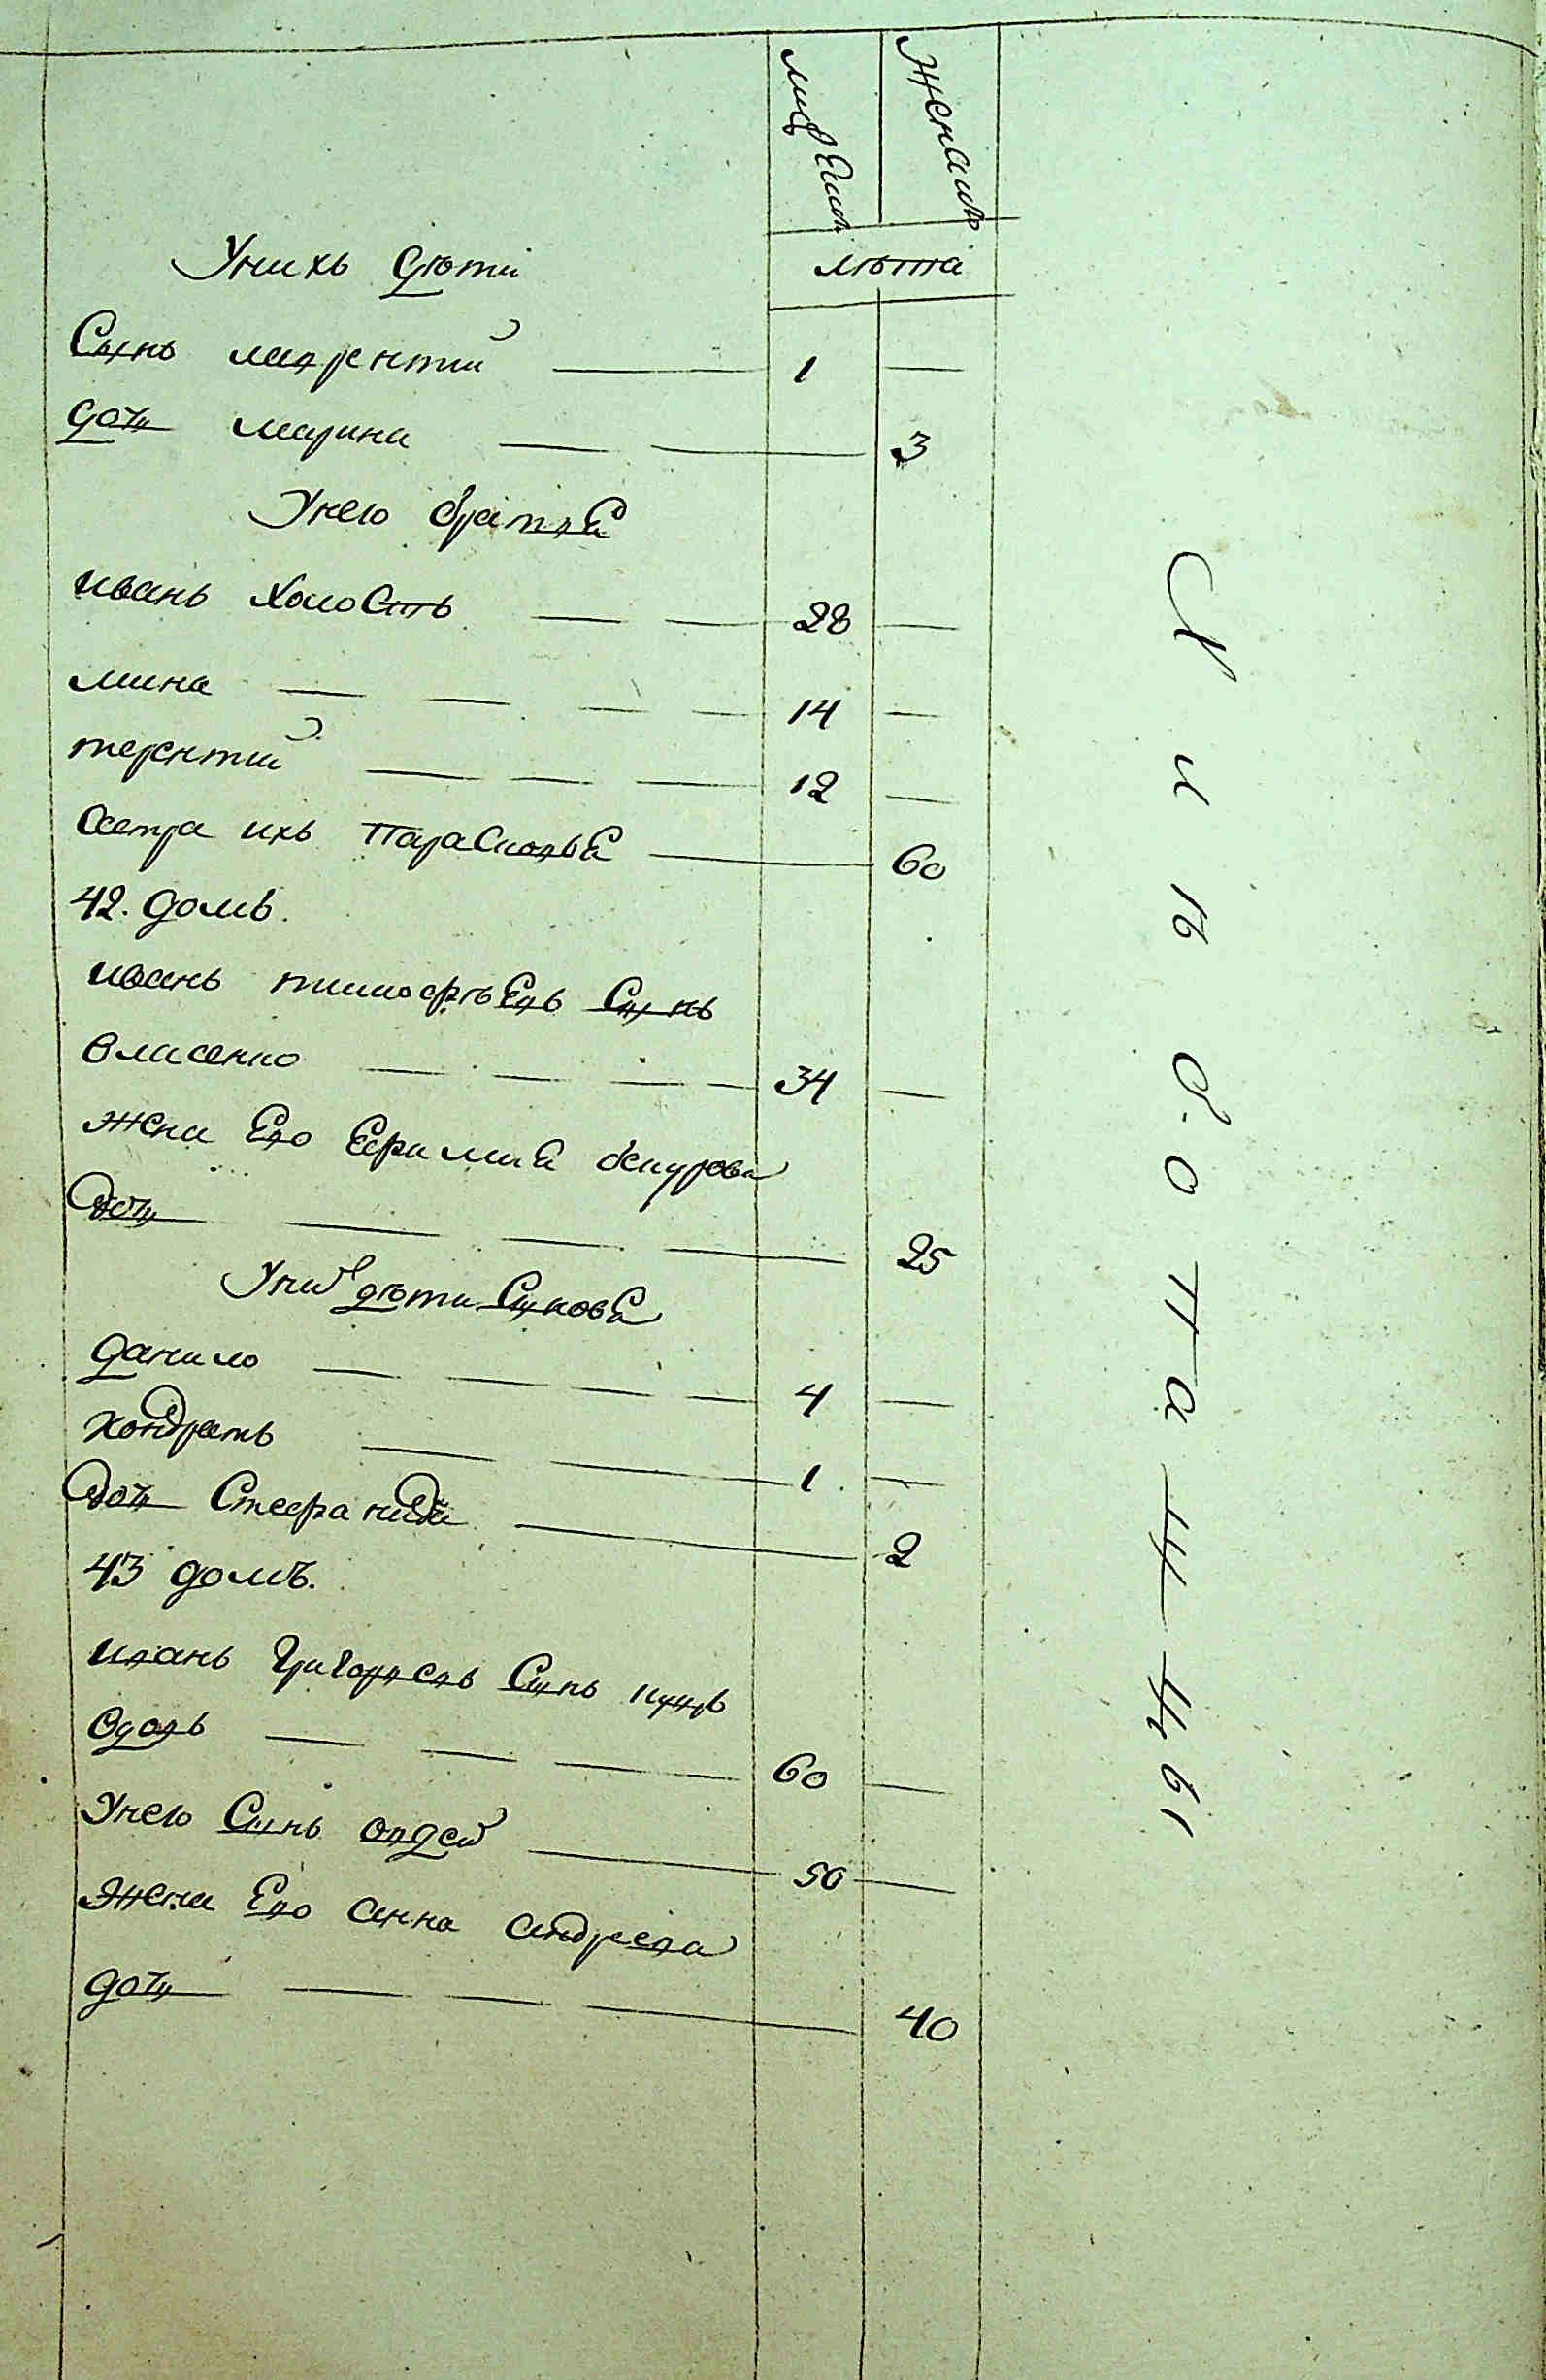 мужеска
женска
лѣта
У них дѣти
Сынъ лаврентий 1 —
дочь марина 3
У него братья
иванъ холостъ 28 —
мина 14 —
терентий 12 —
сестра ихъ Парасковья 60
42. домъ.
иванъ тимофѣевъ Сынъ
власенко 34 —
жена Ево Ефимия
дочь 25
У них дѣти Сыновья
данило 4 —
кондратъ 1 —
дочь Стефанида 2
43 домъ.
иванъ Григорьевъ Сынъ
вдовъ 60 —
У него Сынъ авдей 50 —
Жена Ево анна андреева
дочь 40